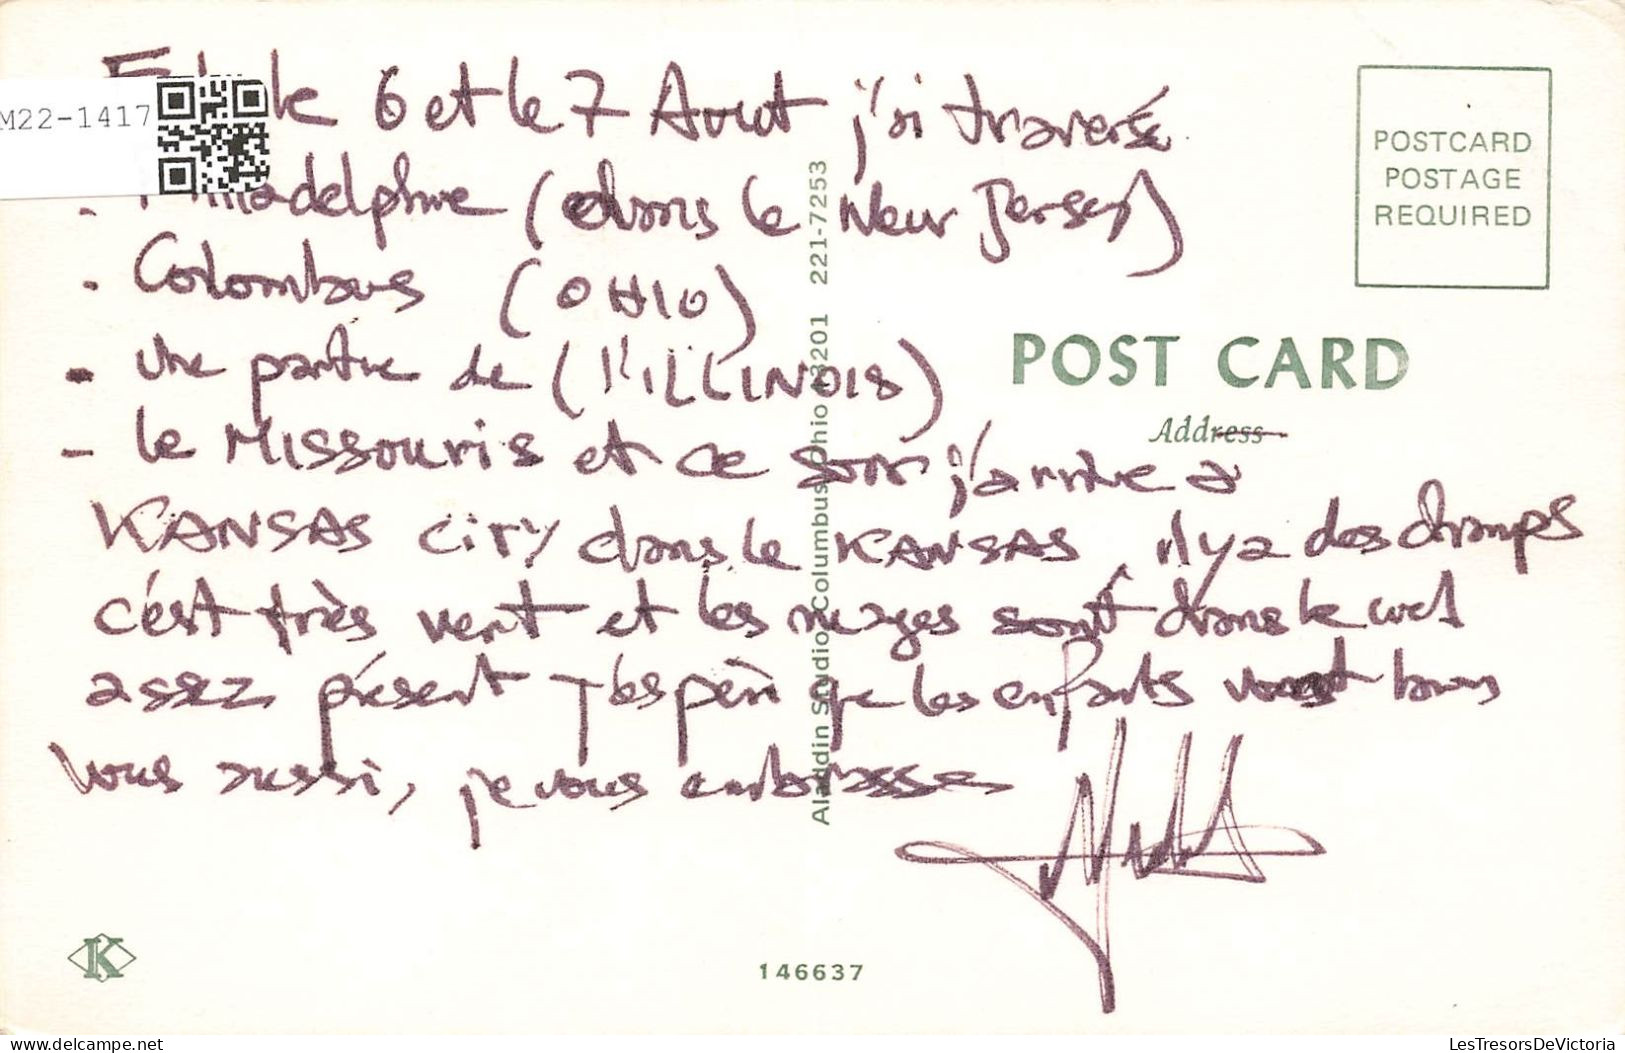 M22-1417
le 6 et le 7 Aout j'ai traversé
- Philadelphie (dans le New Jersey)
- Colombus (OHIO)
- Une partie de (l'ILLINOIS)
- le Missouris et ce soir j'arrive a
KANSAS CITY dans le KANSAS, il y a des champs
c'est très vert et les nuages sont dans le ciel
assez présent J'espère que les enfants vont bien
vous aussi, je vous embrasse
POSTCARD
POSTAGE
REQUIRED
POST CARD
Address
Aladdin Studio, Columbus, Ohio 43201 221-7253
K
146637
LesTresorsDeVictoria